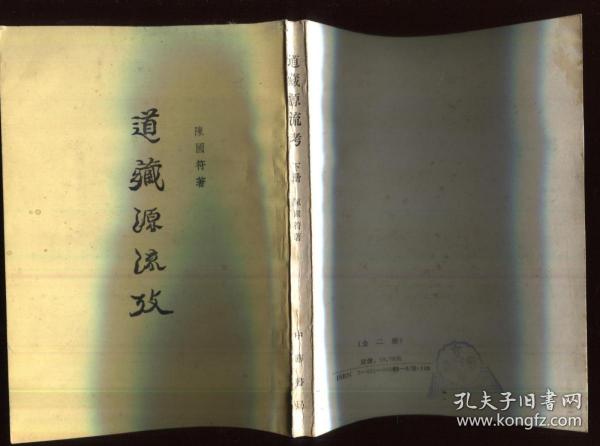 道藏源流攷
陳國符著
道藏源流考
下冊
陳國符著
中華書局
(全二册)
ISBN
孔夫子旧书网
www.kongfz.com